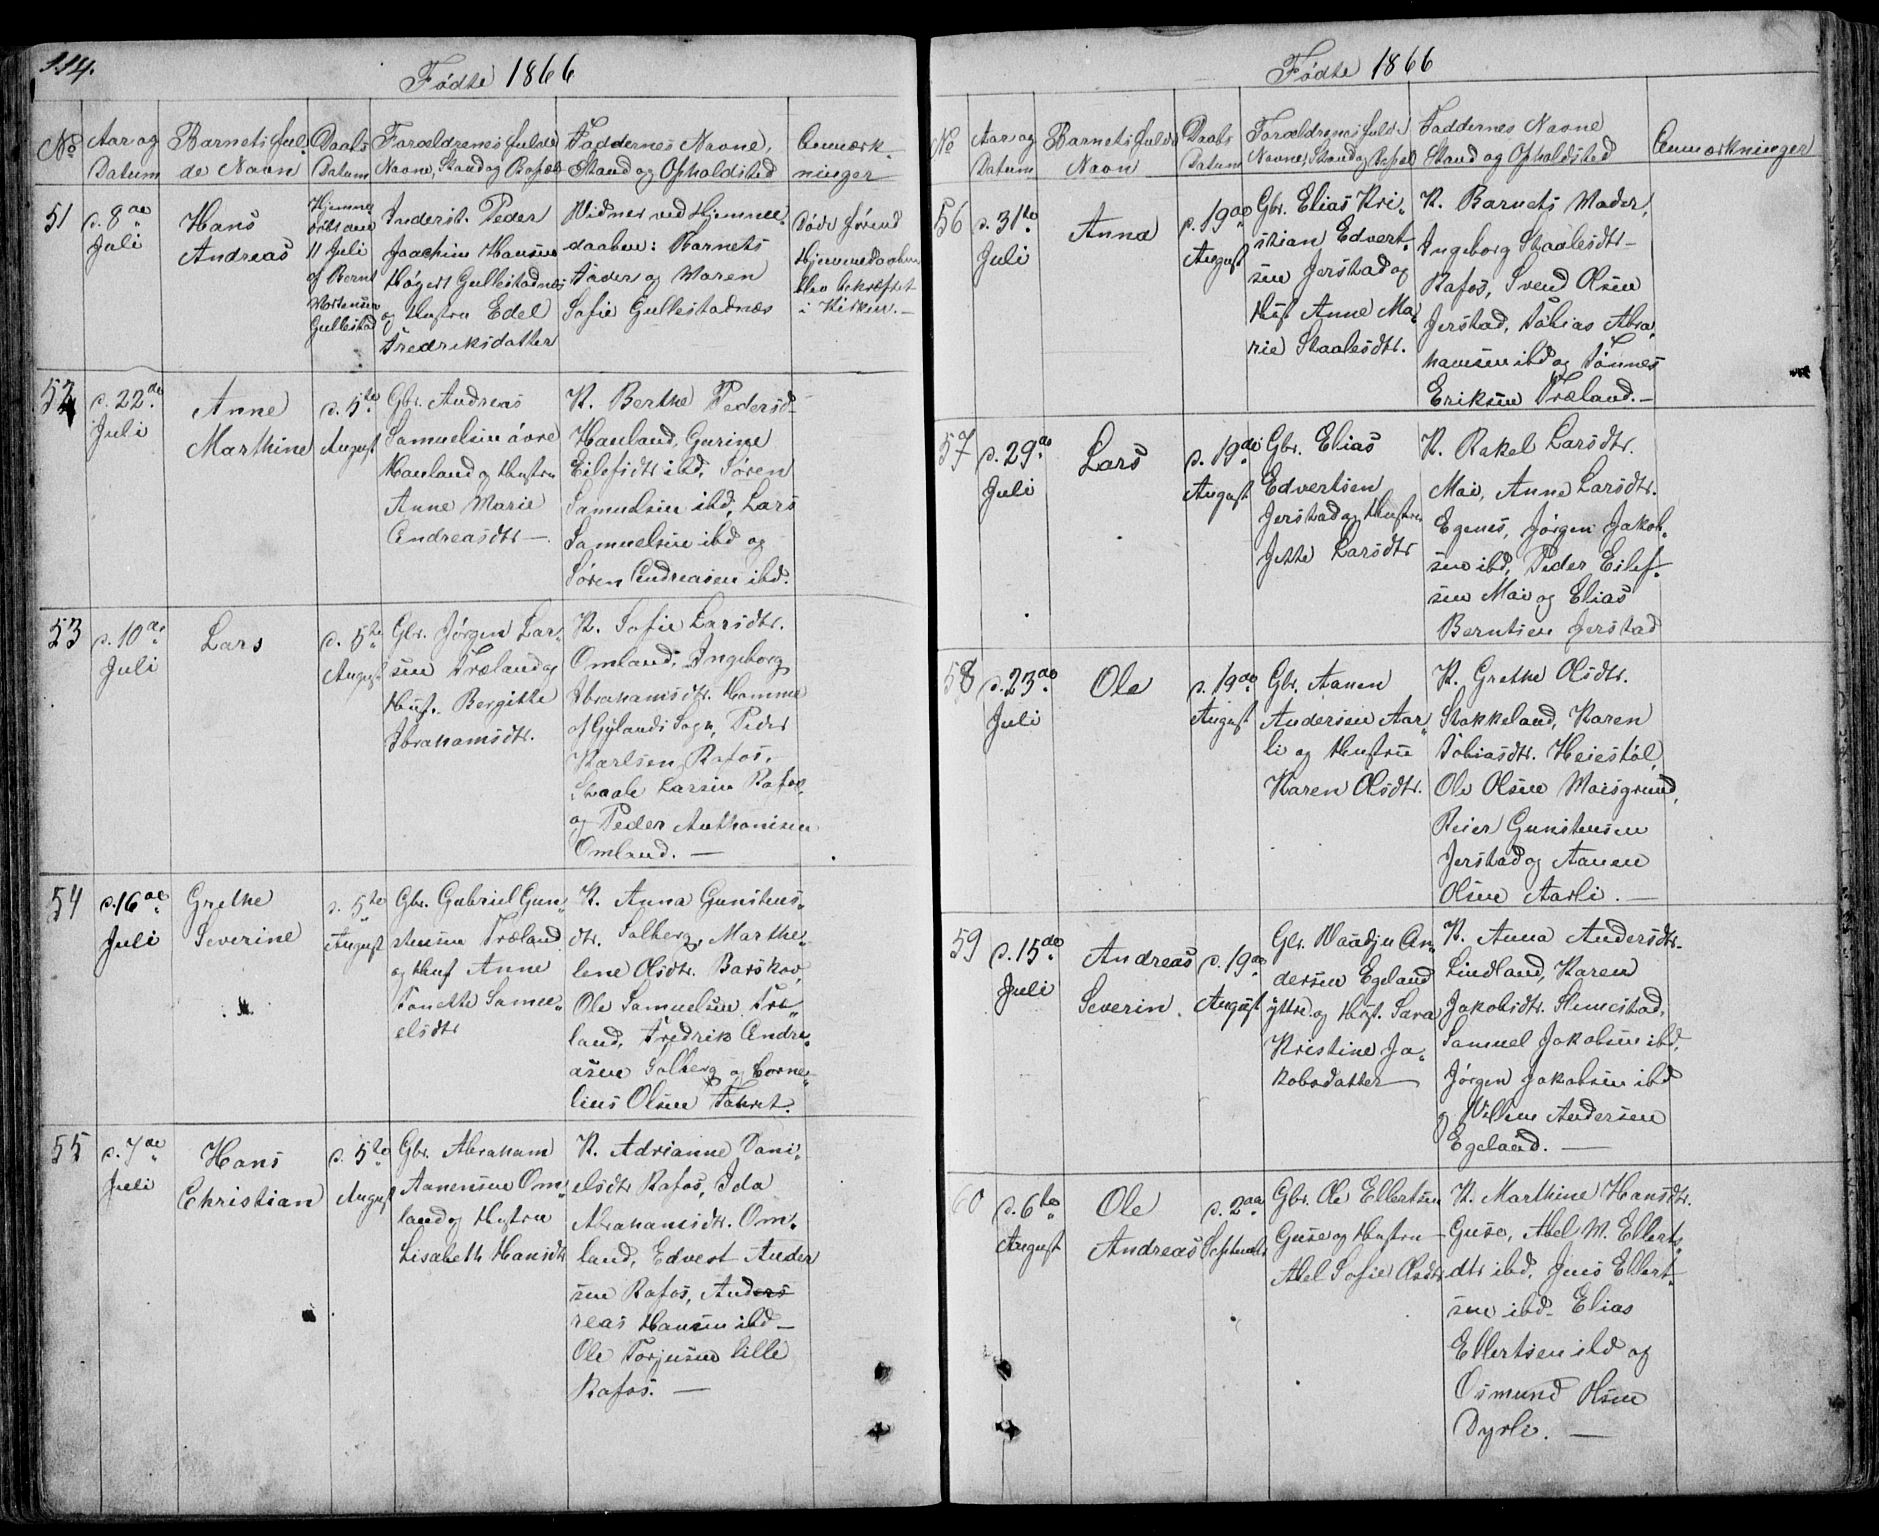 114.
Fødte 1866
No
Aar og
Datum
Barnets ful-
de Navn
Daabs
Datum
Forældrenes fulde
Navne, Stand og Bopæl
Faddernes Navne,
Stand og Opholdsted
Anmærk-
ninger
51
d. 8de
Juli
Hans
Andreas
Hjemme
døbt den
11 Juli
af Bernt
Mortensen
Gullestad
Inderst. Peder
Joachim Hansen
Gullestadnæs
og Hustru Edel
Fredriksdatter
Vidner ved Hjemme
daaben: Barnets
Fader og Maren
Sofie Gullestadnæs
Døde førend
Hjemmedaaben
blev bekræftet
i Kirken. -
52
d. 22de
Juli
Anne
Marthine
d. 5te
August
Gbr. Andreas
Samuelsen øvre
Hauland og Hustru
Anne Marie
Andreasdtr -
K. Berthe Pedersd
Hauland, Gurine
Eilefsdtr ibd, Søren
Samuelsen ibd, Lars
Samuelsen ibd og
Søren Andreasen ibd.
53
d. 10de
Juli
Lars
d. 5te
August
Gbr. Jørgen Lar-
sen Træland og
Hust. Bergitte
Abrahamsdtr.
K. Sofie Larsdtr.
Omland, Ingeborg
Abrahamsdtr. Hamme
af Gylands Sogn, Peder
Karlsen Rafos,
Staale Larsen Rafos
og Peder Anthonisen
Omland. -
54
d. 16de
Juli
Grethe
Severine
d. 5te
August
Gbr. Gabriel Gun-
stensen Træland
og Hust Anne
Tonette Samu-
elsdtr
K. Anna Gunstens-
dtr. Solberg, Marthe-
lene Olsdtr. Barskov,
Ole Samuelsen Træ-
land, Fredrik Andre-
asen Solberg og Corne-
lius Olsen
55
d. 7de
Juli
Hans
Christian
d. 5te
August
Gbr. Abraham
Aanensen Om-
land og Hustru
Lisabeth Hansdtr
K. Adrianne Dani-
elsdtr Rafos, Ida
Abrahamsdtr. Om-
land, Edvert Ander
sen Rafos, Anders
reas Hansen ibd -
Ole Torjusen lille
Rafos. -
Fødte 1866
No
Aar og
Datum
Barnets fulde
Navn
Daabs
Datum
Forældrenes fulde
Navne, Stand og Bopæl
Faddernes Navne
Stand og Opholdsted
Anmærkninger
56
d. 31te
Juli
Anna
d. 19de
August
Gbr. Elias Kri-
stian Edvert-
sen Jerstad og
Hust Anne Ma-
rie Staalesdtr.
K. Barnets Moder,
Ingeborg Staalesdtr -
Rafos, Svend Olsen
Jerstad, Tobias Abra-
hamsen ibd og Tønnes
Eriksen Træland. -
57
d. 29de
Juli
Lars
d. 19de
August
Gbr. Elias
Edvertsen
Jerstad og Hustru
Jette Larsdtr
K. Rakel Larsdtr.
Moi, Anne Larsdtr.
Egenes, Jørgen Jakob-
sen ibd, Peder Eilef-
sen Moi og Elias
Berntsen Jerstad
58
d. 23de
Juli
Ole
d. 19de
August
Gbr. Aanen
Andersen Aar-
li og Hustru
Karen Olsdtr.
K. Grethe Olsdtr.
Stakkeland, Karen
Tobiasdtr. Heiestøl,
Ole Olsen Moisgrund,
Reier Gunstensen
Jerstad og Aanen
Olsen Aarli. -
59
d. 15de
Juli
Andreas
Severin.
d. 19de
August
Gbr. Waadju An-
dersen Egeland
yttre og Hust. Sara
Kristine Ja-
kobsdatter
K. Anna Andersdtr-
Lindland, Karen
Jakobsdtr. Slimestad,
Samuel Jakobsen ibd,
Jørgen Jakobsen ibd
og Villum Andersen
Egeland. -
60
d. 6te
August
Ole
Andreas
d. 2den
Septembr
Gbr. Ole Ellertsen
Guse og Hustru -
Abel Sofie Olsdtr
K. Marthine Hansdtr.
Guse, Abel M. Ellerts-
dtr ibd, Jens Ellert-
sen ibd - Elias
Ellertsen ibd og
Osmund Olsen
Dyrli. -